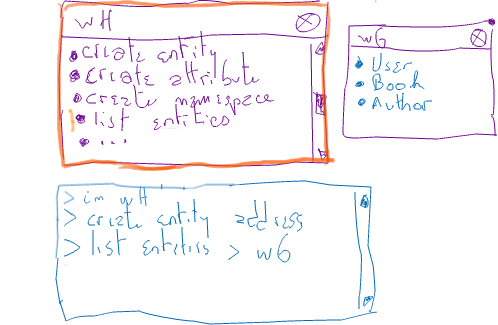 wH
• create entity
• create attribute
• create namespace
• list entities
• ...
w6
• User
• Book
• Author
> im wH
> create entity address
> list entities > w6